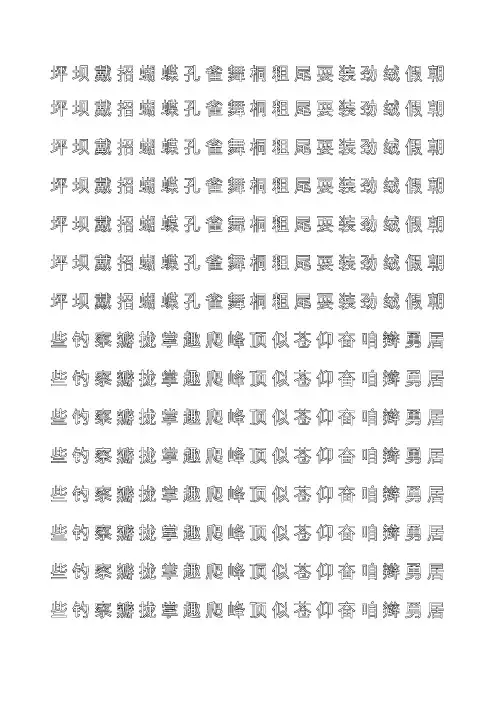 坪坝戴招蝴蝶孔雀舞桐粗尾耍装劲绒假朝
坪坝戴招蝴蝶孔雀舞桐粗尾耍装劲绒假朝
坪坝戴招蝴蝶孔雀舞桐粗尾耍装劲绒假朝
坪坝戴招蝴蝶孔雀舞桐粗尾耍装劲绒假朝
坪坝戴招蝴蝶孔雀舞桐粗尾耍装劲绒假朝
坪坝戴招蝴蝶孔雀舞桐粗尾耍装劲绒假朝
坪坝戴招蝴蝶孔雀舞桐粗尾耍装劲绒假朝
些钓察瓣拢掌趣爬峰顶似苍仰奋咱辫勇居
些钓察瓣拢掌趣爬峰顶似苍仰奋咱辫勇居
些钓察瓣拢掌趣爬峰顶似苍仰奋咱辫勇居
些钓察瓣拢掌趣爬峰顶似苍仰奋咱辫勇居
些钓察瓣拢掌趣爬峰顶似苍仰奋咱辫勇居
些钓察瓣拢掌趣爬峰顶似苍仰奋咱辫勇居
些钓察瓣拢掌趣爬峰顶似苍仰奋咱辫勇居
些钓察瓣拢掌趣爬峰顶似苍仰奋咱辫勇居